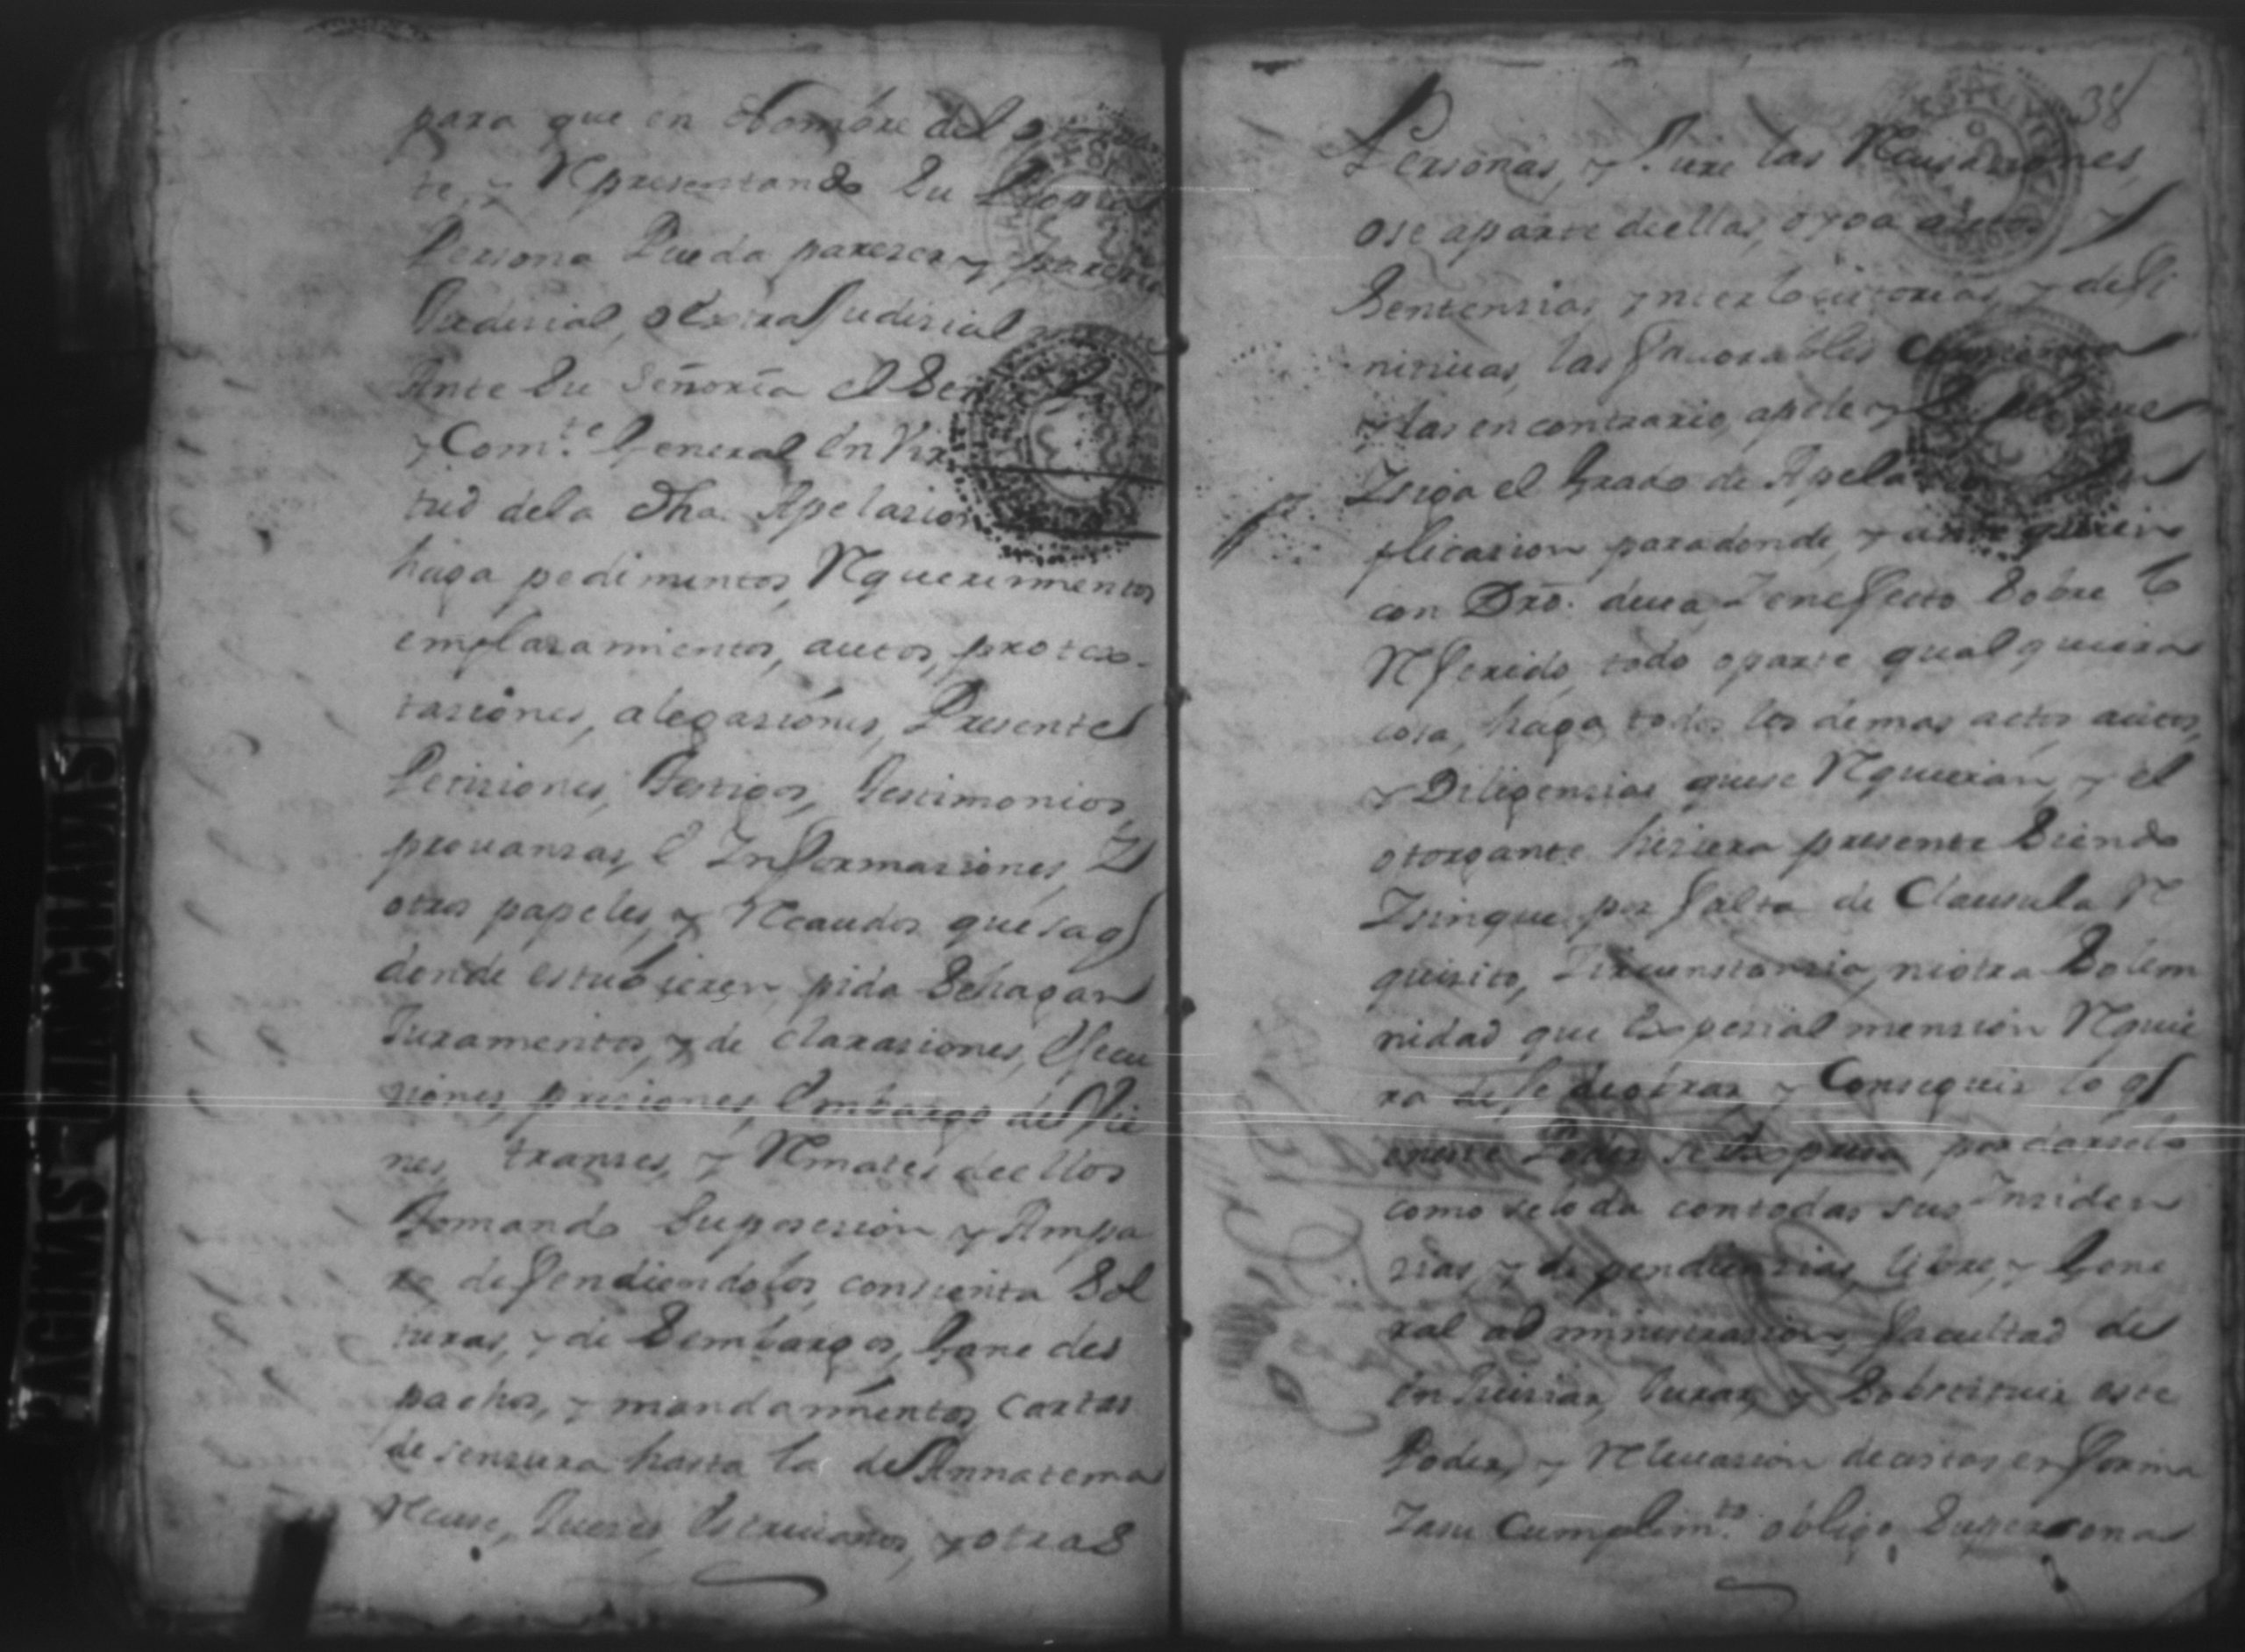 para que en Nombre del otorgan
te, y Representando Su Propria
Persona Pueda pareser y paresca
Judisial, o extra Judisial mente
Ante Su Señoria el Señor
y Com.te General En Vir
tud dela dha. Apelasion
haga pedimentos, Requerimentos
emplasamientos, autos, protex-
tasiones, alegasiones, Presente
Petisiones, Testigos, Testimonios,
provansas, e Informasiones, I
otros papeles, y Recaudos que saq
donde estubieren pida Sehagan
Juramentos, y de clarasiones, Esecu
siones, prisiones, Embargo de Vie
nes, transes, y Rmates deellos
Tomando Suposesion y Ampa
ro defendiendolos, consienta Sol
turas, y de Sembargos, Gane des
pachos, y mandamientos, Cartas
de sensura hasta la de Annatema
Recuse, Jueses, Escrivanos, y otras
38
Personas, y Jure las Recusasiones,
ose aparte deellas, oyga autos y
Sentensias, ynterlocutorias, y defi
nitivas, las favorables Consienta
y las en contrario, apele y Suplique
Isiga el Grado de Apelasion
plicasion paradonde, y ante quien
con Dro. deva, I enefecto Sobre lo
Referido, todo oparte qualquiera
cosa, haga todos los demas actos autos,
y Diligensias quese Requieran, y el
otorgante hisiera presente Siendo
Isinque por falta de Clausula Re
quisito, Sircunstansia, niotra Solem
nidad que Expesial mension Requie
ra dese deobrar, y Conseguir lo q
eneste Poder se expresa pordarselo
como selo da contodas sus Insiden
sias, y de pendensias, libre, y Gene
ral administrasion, facultad de
EnJuisiar, Jurar, y Sobstituir este
Poder, y Relevasion decostas, en forma
Iasu Cumplim.to obligo Supersona